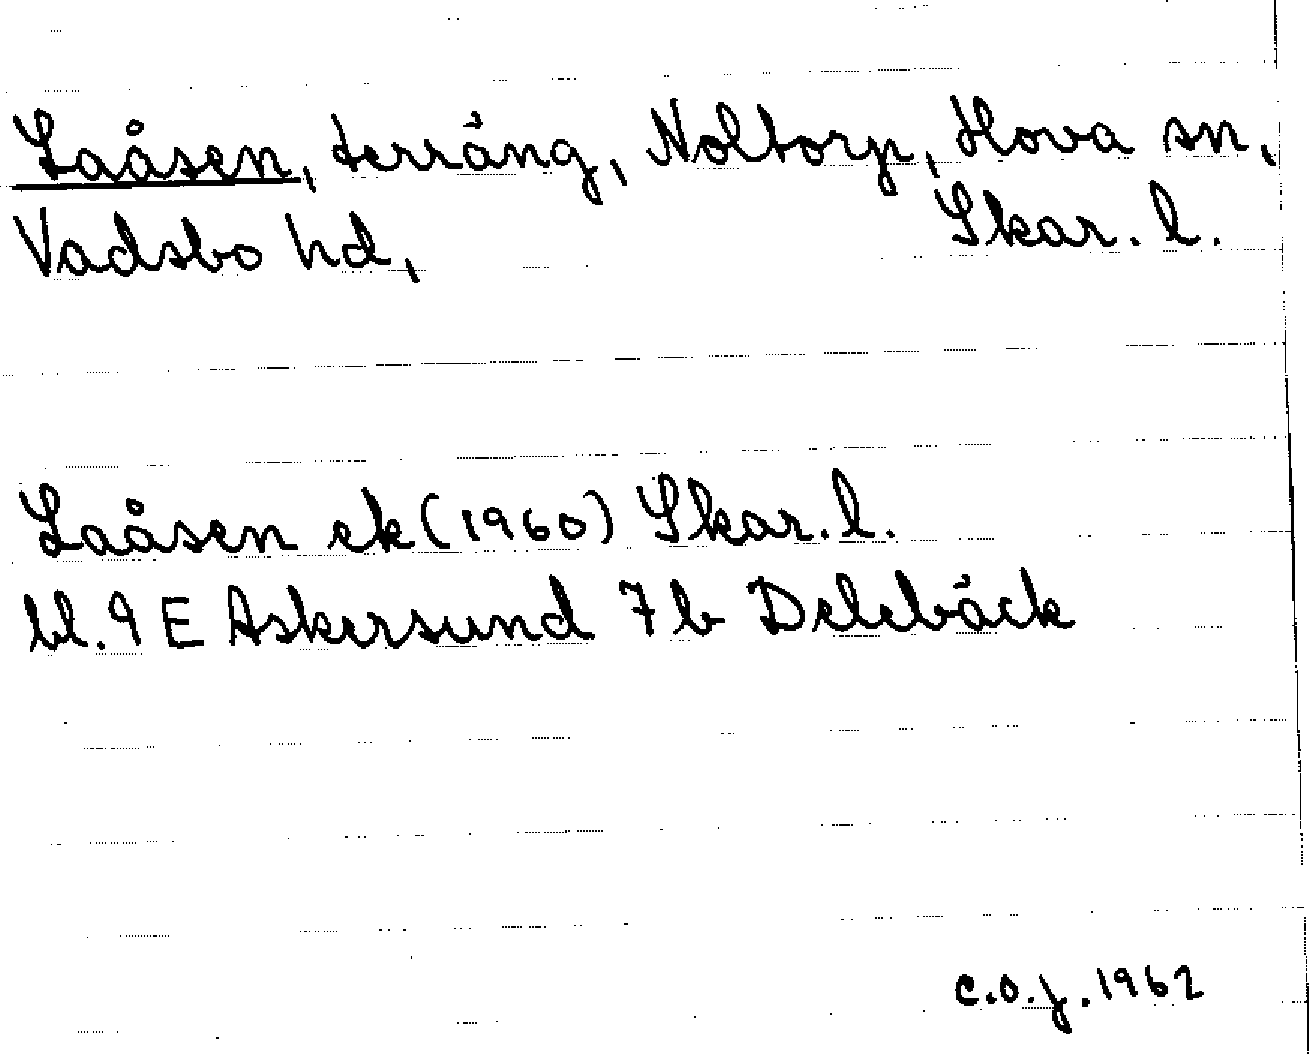 Laåsen, terräng, Noltorp, Hova sn,
Vadsbo hd, Skar. l.
Laåsen ek (1960) Skar. l.
bl. 9 E Askersund 7 b Delebäck
C.O.J. 1962